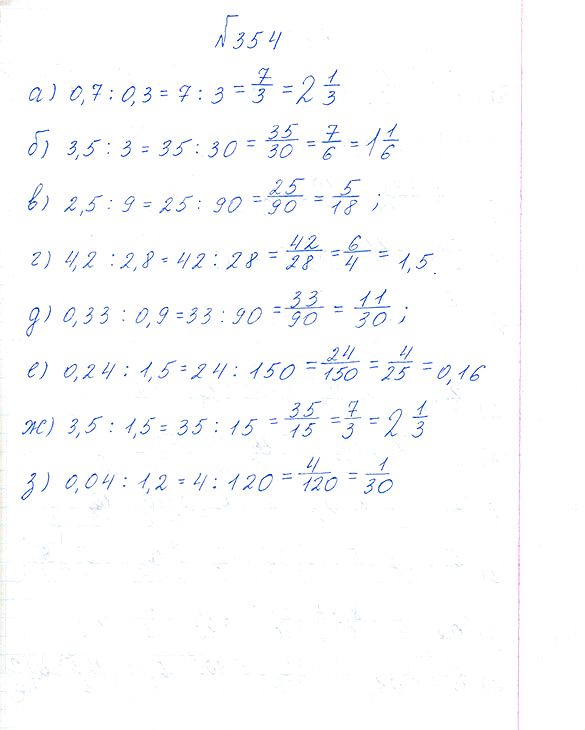 №354
а) 0,7 : 0,3 = 7 : 3 = 7/3 = 2 1/3
б) 3,5 : 3 = 35 : 30 = 35/30 = 7/6 = 1 1/6
в) 2,5 : 9 = 25 : 90 = 25/90 = 5/18 ;
г) 4,2 : 2,8 = 42 : 28 = 42/28 = 6/4 = 1,5.
д) 0,33 : 0,9 = 33 : 90 = 33/90 = 11/30 ;
е) 0,24 : 1,5 = 24 : 150 = 24/150 = 4/25 = 0,16
ж) 3,5 : 1,5 = 35 : 15 = 35/15 = 7/3 = 2 1/3
з) 0,04 : 1,2 = 4 : 120 = 4/120 = 1/30